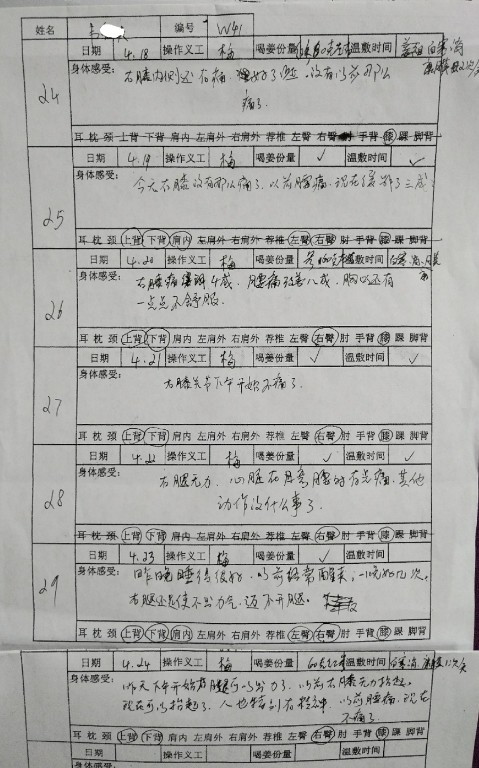 姓名 编号 W41
日期 4.18 操作义工 梅 喝姜份量 温敷时间
24 身体感受: 右膝内侧还有痛, 没有以前那么
痛了.
耳 枕 颈 上背 下背 肩内 左肩外 右肩外 荐椎 左臀 右臀 肘 手背 膝 踝 脚背
日期 4.19 操作义工 梅 喝姜份量 ✓ 温敷时间 ✓
25 身体感受: 今天右膝没有那么痛了. 以前腰痛, 现在缓解了三成
耳 枕 颈 上背 下背 肩内 左肩外 右肩外 荐椎 左臀 右臀 肘 手背 膝 踝 脚背
日期 4.20 操作义工 梅 喝姜份量 温敷时间
26 身体感受: 右腰痛缓解4成. 腰痛改善八成, 胸口还有
一点点不舒服.
耳 枕 颈 上背 下背 肩内 左肩外 右肩外 荐椎 左臀 右臀 肘 手背 膝 踝 脚背
日期 4.21 操作义工 梅 喝姜份量 ✓ 温敷时间 ✓
27 身体感受: 右膝关节下午开始不痛了.
耳 枕 颈 上背 下背 肩内 左肩外 右肩外 荐椎 左臀 右臀 肘 手背 膝 踝 脚背
日期 4.22 操作义工 梅 喝姜份量 ✓ 温敷时间 ✓
28 身体感受: 右腿无力. 弯腰时有点痛, 其他
动作没什么事了.
耳 枕 颈 上背 下背 肩内 左肩外 右肩外 荐椎 左臀 右臀 肘 手背 膝 踝 脚背
日期 4.23 操作义工 梅 喝姜份量 ✓ 温敷时间
29 身体感受: 昨晚睡得很好, 以前经常醒来, 一晚好几次.
右腿还是使不出力气, 迈不开腿.
耳 枕 颈 上背 下背 肩内 左肩外 右肩外 荐椎 左臀 右臀 肘 手背 膝 踝 脚背
日期 4.24 操作义工 梅 喝姜份量 温敷时间
身体感受: 昨天下午开始右腿可以出力了. 以前右腿无力抬起,
现在可以抬起了. 人也特别有精神. 以前腰痛, 现在
不痛了
耳 枕 颈 上背 下背 肩内 左肩外 右肩外 荐椎 左臀 右臀 肘 手背 膝 踝 脚背
日期 操作义工 喝姜份量 温敷时间